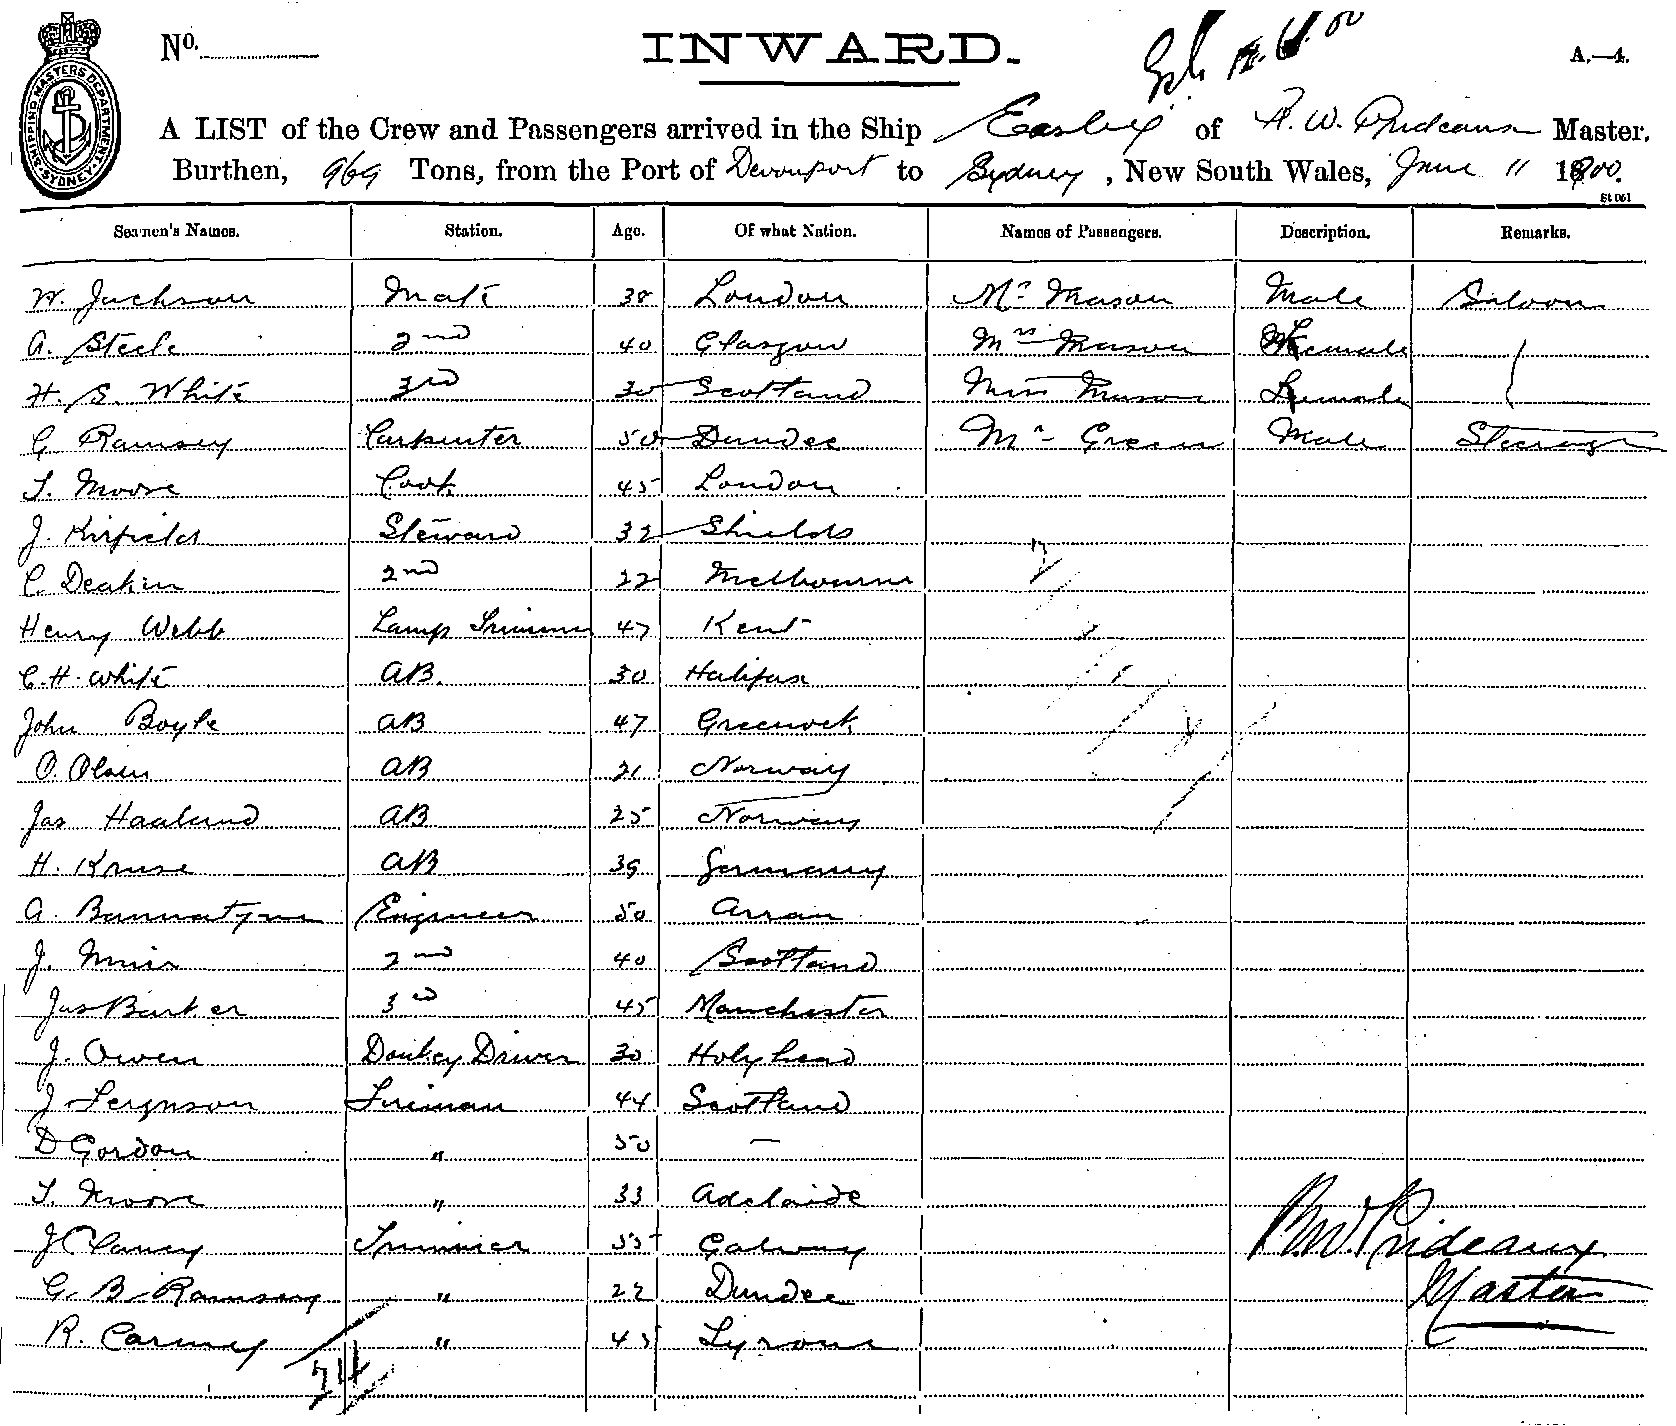 SHIPPING MASTERS DEPARTMENT. SYDNEY.
No.
INWARD.
A.—4.
A LIST of the Crew and Passengers arrived in the Ship Easby of R. W. Prideaux Master,
Burthen, 969 Tons, from the Port of Devonport to Sydney, New South Wales, June 11 1900.
Seamen's Names. Station. Age. Of what Nation. Names of Passengers. Description. Remarks.
W. Jackson Mate 38 London Mr Mason Male Saloon
A. Steele 2nd 40 Glasgow Mrs Mason Female
H. S. White 3rd 30 Scotland Miss Mason Female
G Ramsey Carpenter 50 Dundee Mr Green Male Steerage
T. Moore Cook 45 London
J. Kirfield Steward 32 Shields
C. Deakin 2nd 22 Melbourne
Henry Webb Lamp Trimmer 47 Kent
C. H. White AB. 30 Halifax
John Boyle AB 47 Greenock
O. Olsen AB 21 Norway
Jas Haalund AB 25 Norway
H. Kruse AB 39 Germany
A Bannatyne Engineer 50 Arran
J. Muir 2nd 40 Scotland
Jas Barker 3rd 45 Manchester
J. Owen Donkey Driver 30 Holyhead
J Ferguson Fireman 44 Scotland
D Gordon " 50 —
T. Moore " 33 Adelaide
J Clancy Trimmer 55 Galway
G. B. Ramsey " 22 Dundee
R. Carney " 45 Tyrone
R. W. Prideaux
Master
24